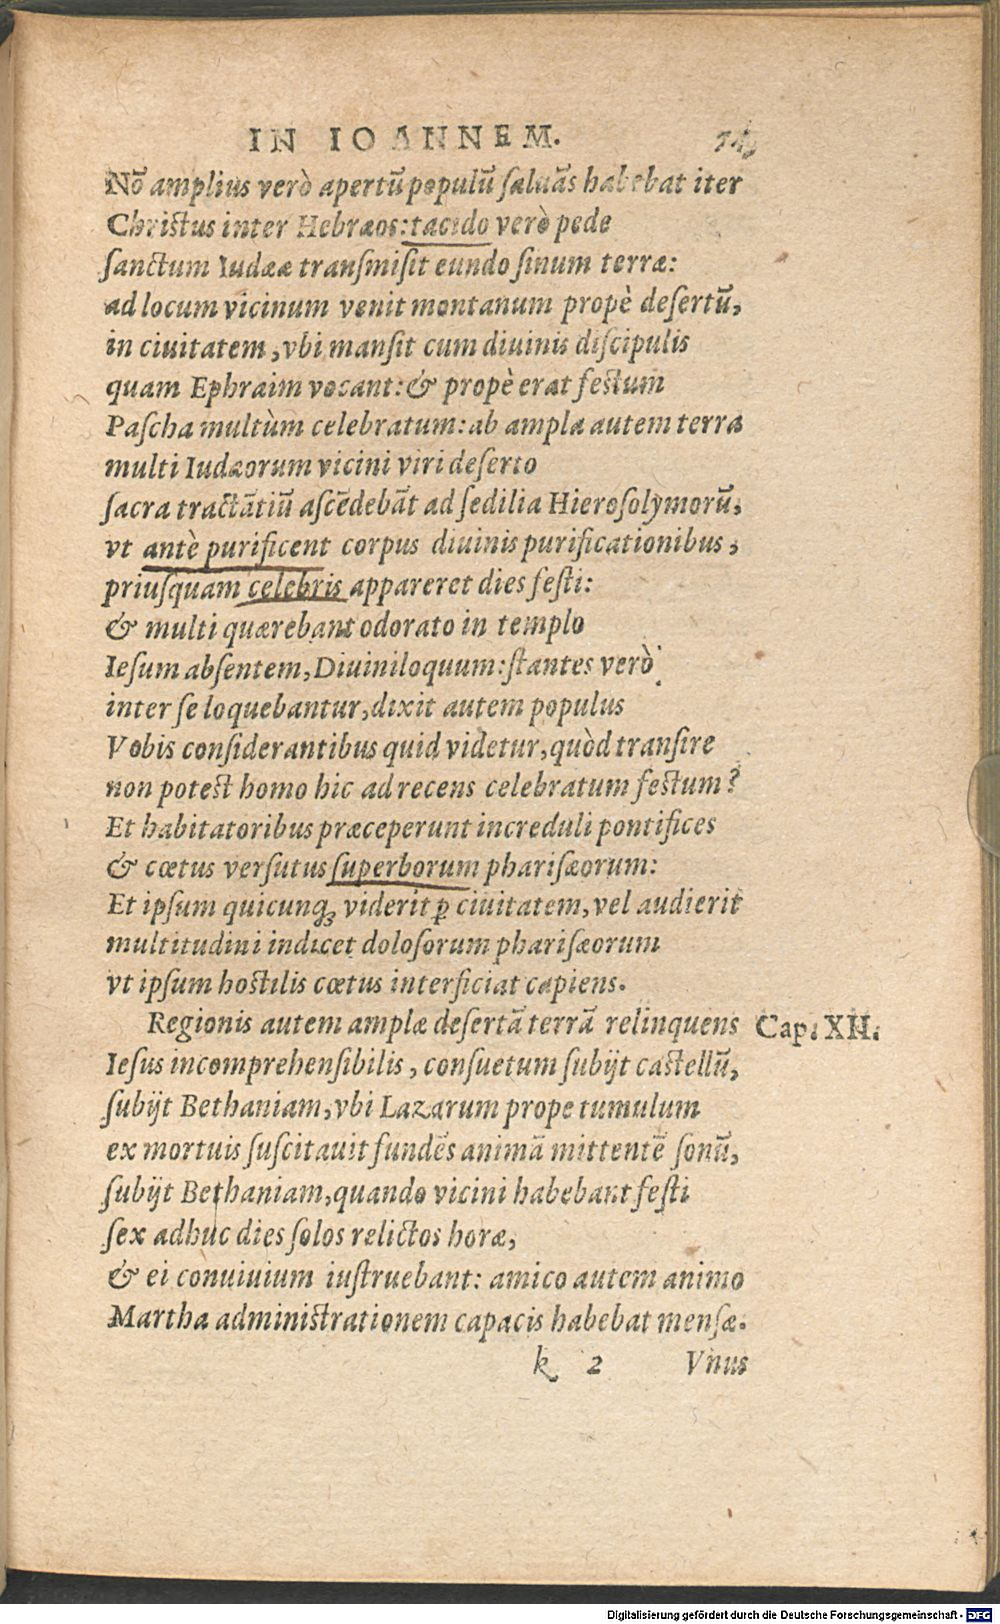 IN IOANNEM.
Nõ amplius verò apertũ populũ saluãs habebat iter
Christus inter Hebræos: tacido verò pede
sanctum Iudææ transmisit eundo sinum terræ:
ad locum vicinum venit montanum propè desertũ,
in ciuitatem, vbi mansit cum diuinis discipulis
quam Ephraim vocant: & propè erat festum
Pascha multùm celebratum: ab ampla autem terra
multi Iudæorum vicini viri deserto
sacra tractãtiũ ascẽdebãt ad sedilia Hierosolymorũ,
vt antè purificent corpus diuinis purificationibus,
priusquam celebris appareret dies festi:
& multi quærebant odorato in templo
Iesum absentem, Diuiniloquum: stantes verò
inter se loquebantur, dixit autem populus
Vobis considerantibus quid videtur, quòd transire
non potest homo hic ad recens celebratum festum?
Et habitatoribus præceperunt increduli pontifices
& cœtus versutus superborum pharisæorum:
Et ipsum quicunq; viderit ꝑ ciuitatem, vel audierit
multitudini indicet dolosorum pharisæorum
vt ipsum hostilis cœtus interficiat capiens.
Regionis autem amplæ desertã terrã relinquens Cap. XII.
Iesus incomprehensibilis, consuetum subijt castellũ,
subijt Bethaniam, vbi Lazarum prope tumulum
ex mortuis suscitauit fundẽs animã mittentẽ sonũ,
subijt Bethaniam, quando vicini habebant festi
sex adhuc dies solos relictos horæ,
& ei conuiuium iustruebant: amico autem animo
Martha administrationem capacis habebat mensæ.
k 2 Vnus
Digitalisierung gefördert durch die Deutsche Forschungsgemeinschaft - DFG